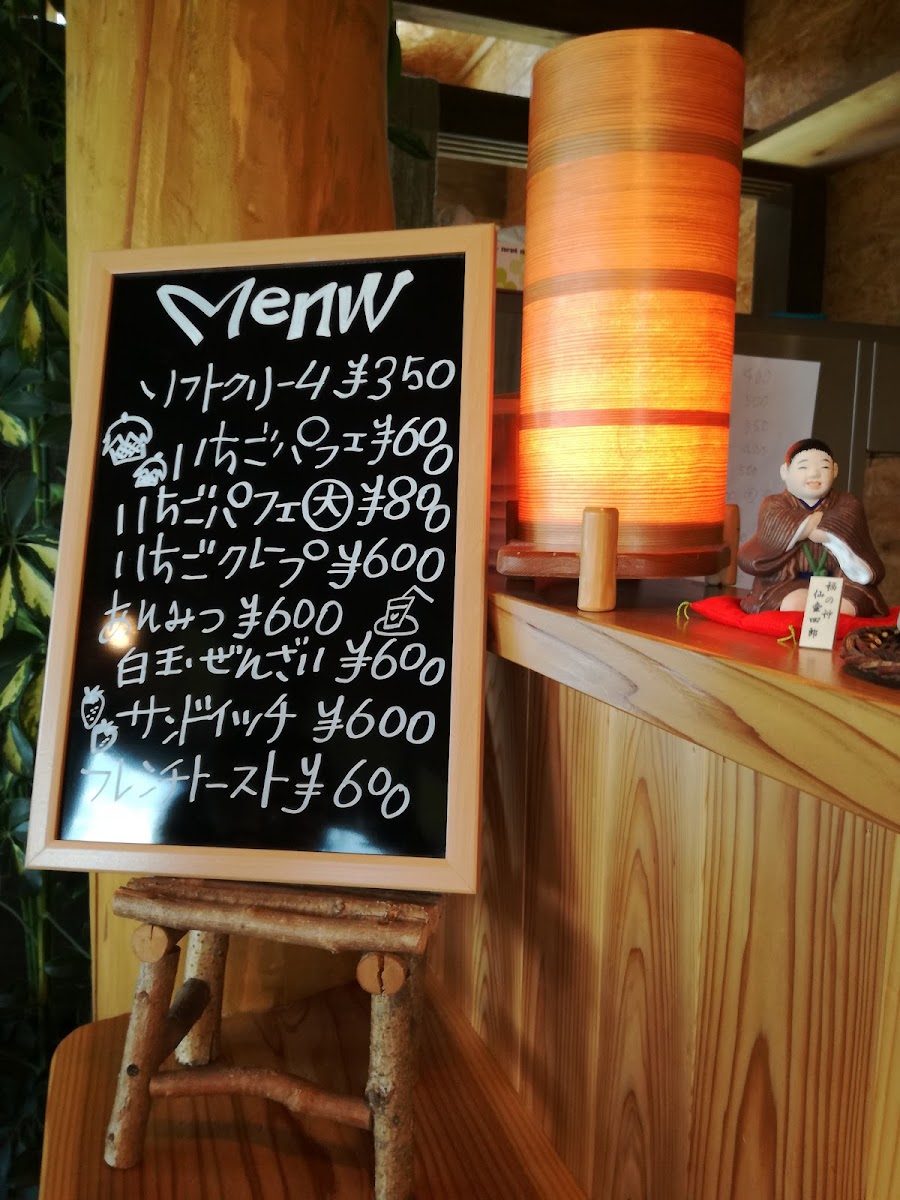 Menu
ソフトクリーム ¥350
いちごパフェ ¥600
いちごパフェ大 ¥800
いちごクレープ ¥600
あんみつ ¥600
白玉・ぜんざい ¥600
サンドイッチ ¥600
フレンチトースト ¥600
福の神
仙臺四郎